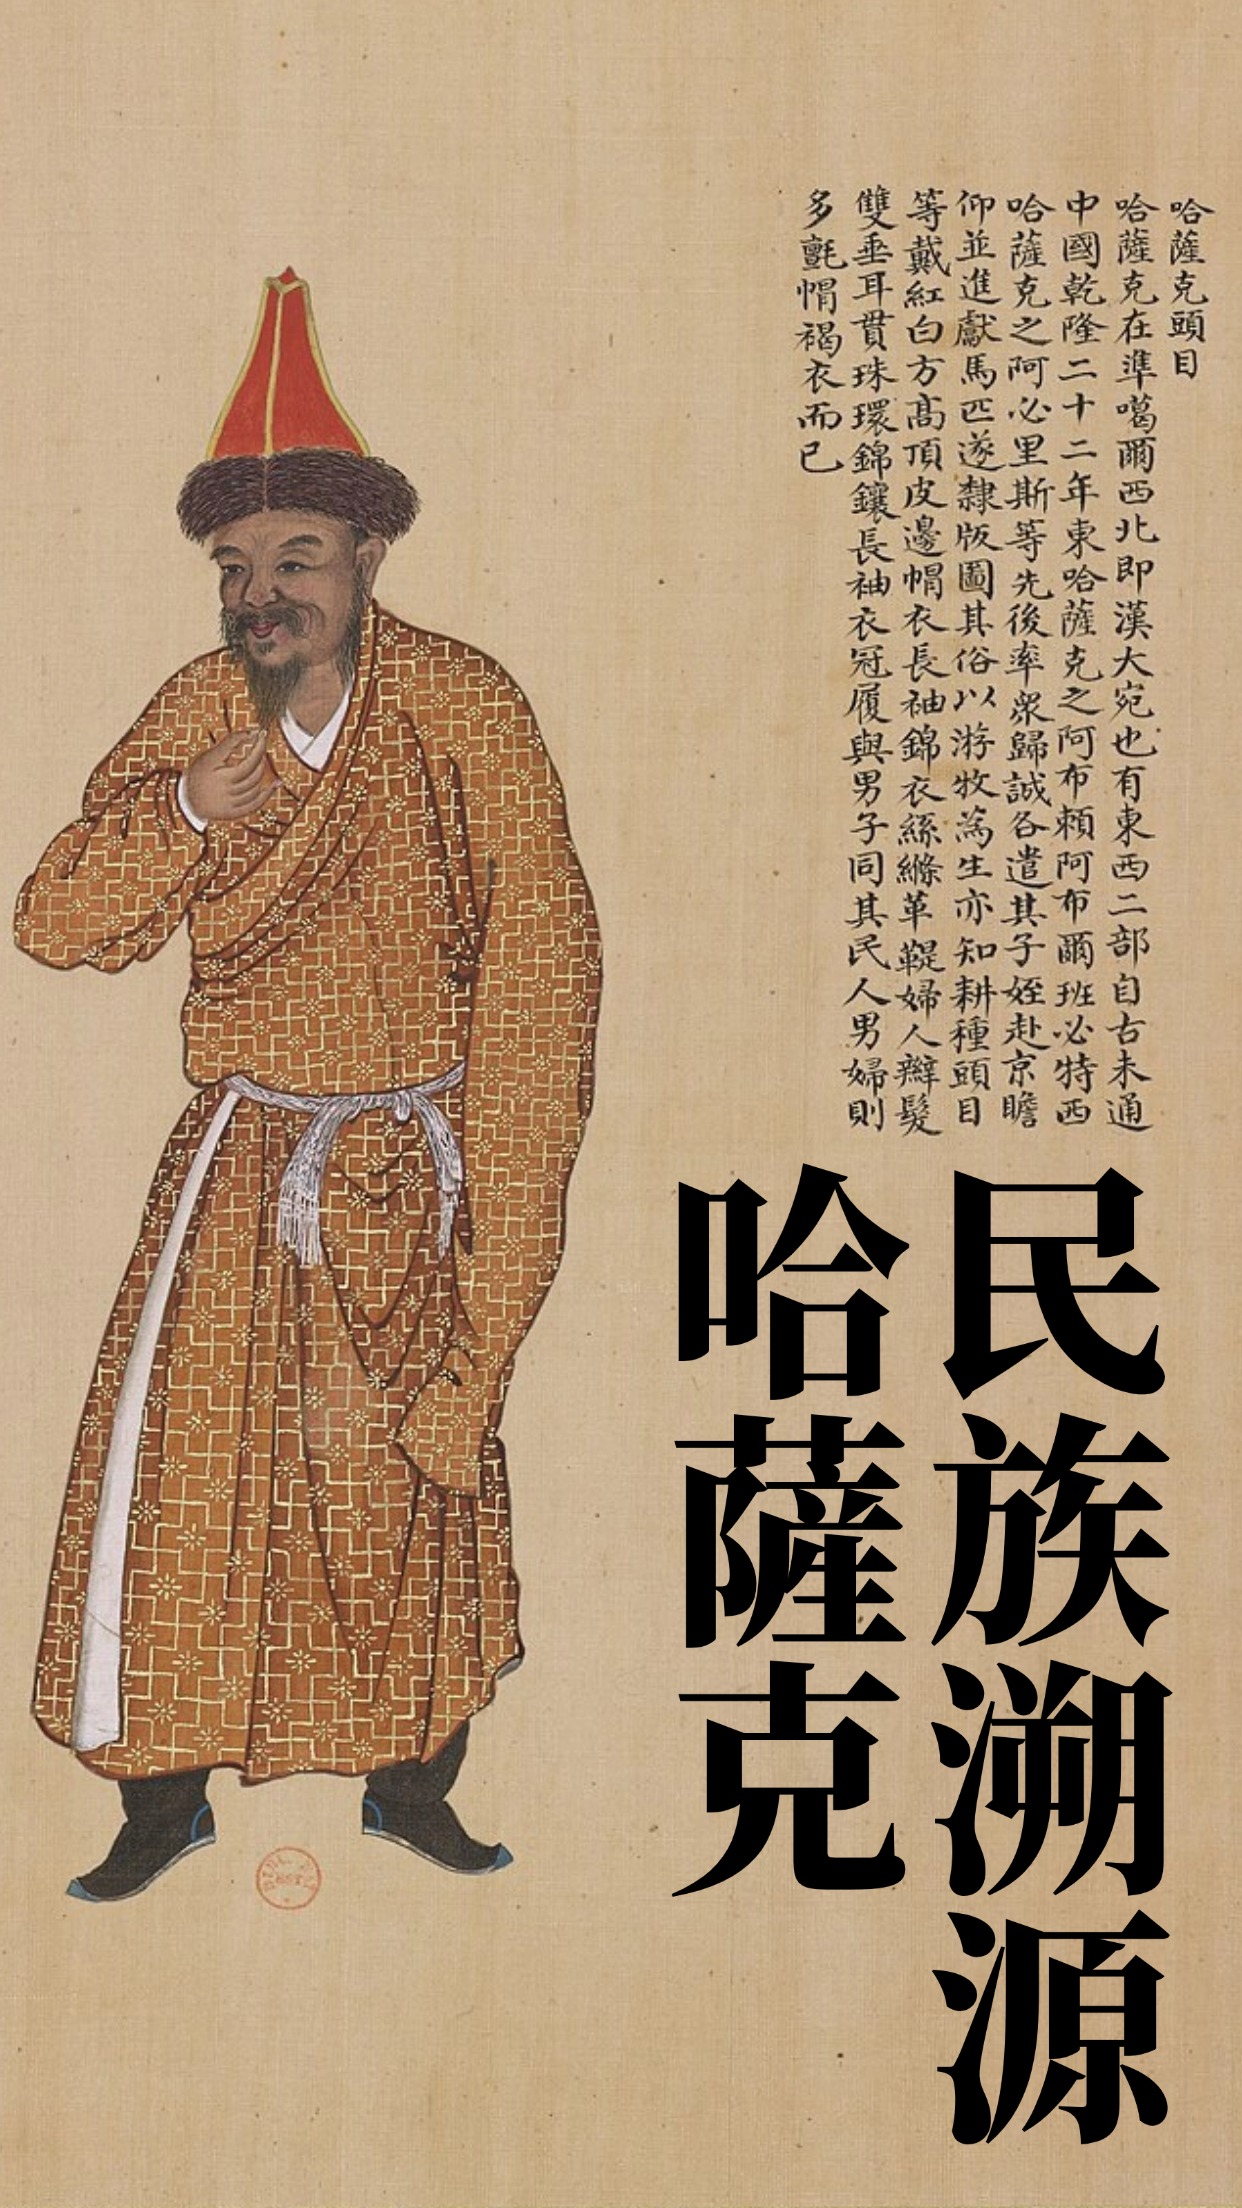 哈薩克頭目
哈薩克在準噶爾西北即漢大宛也有東西二部自古未通
中國乾隆二十二年東哈薩克之阿布賴阿布爾班必特西
哈薩克之阿必里斯等先後率衆歸誠各遣其子姪赴京瞻
仰並進獻馬匹遂隸版圖其俗以游牧為生亦知耕種頭目
等戴紅白方高頂皮邊帽衣長袖錦衣絲縧革鞮婦人辮髮
雙垂耳貫珠環錦鑲長袖衣冠履與男子同其民人男婦則
多氈帽褐衣而已
民族溯源
哈薩克